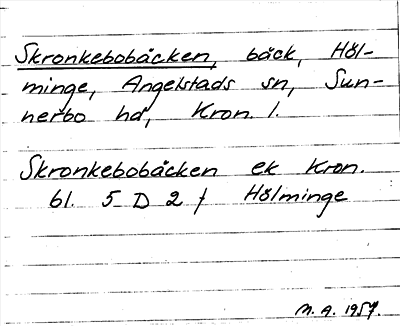 Skronkebobäcken, bäck, Höl-
minge, Angelstads sn, Sun-
nerbo hd, Kron. l.
Skronkebobäcken ek Kron.
bl. 5 D 2 f Hölminge
M. A. 1957.